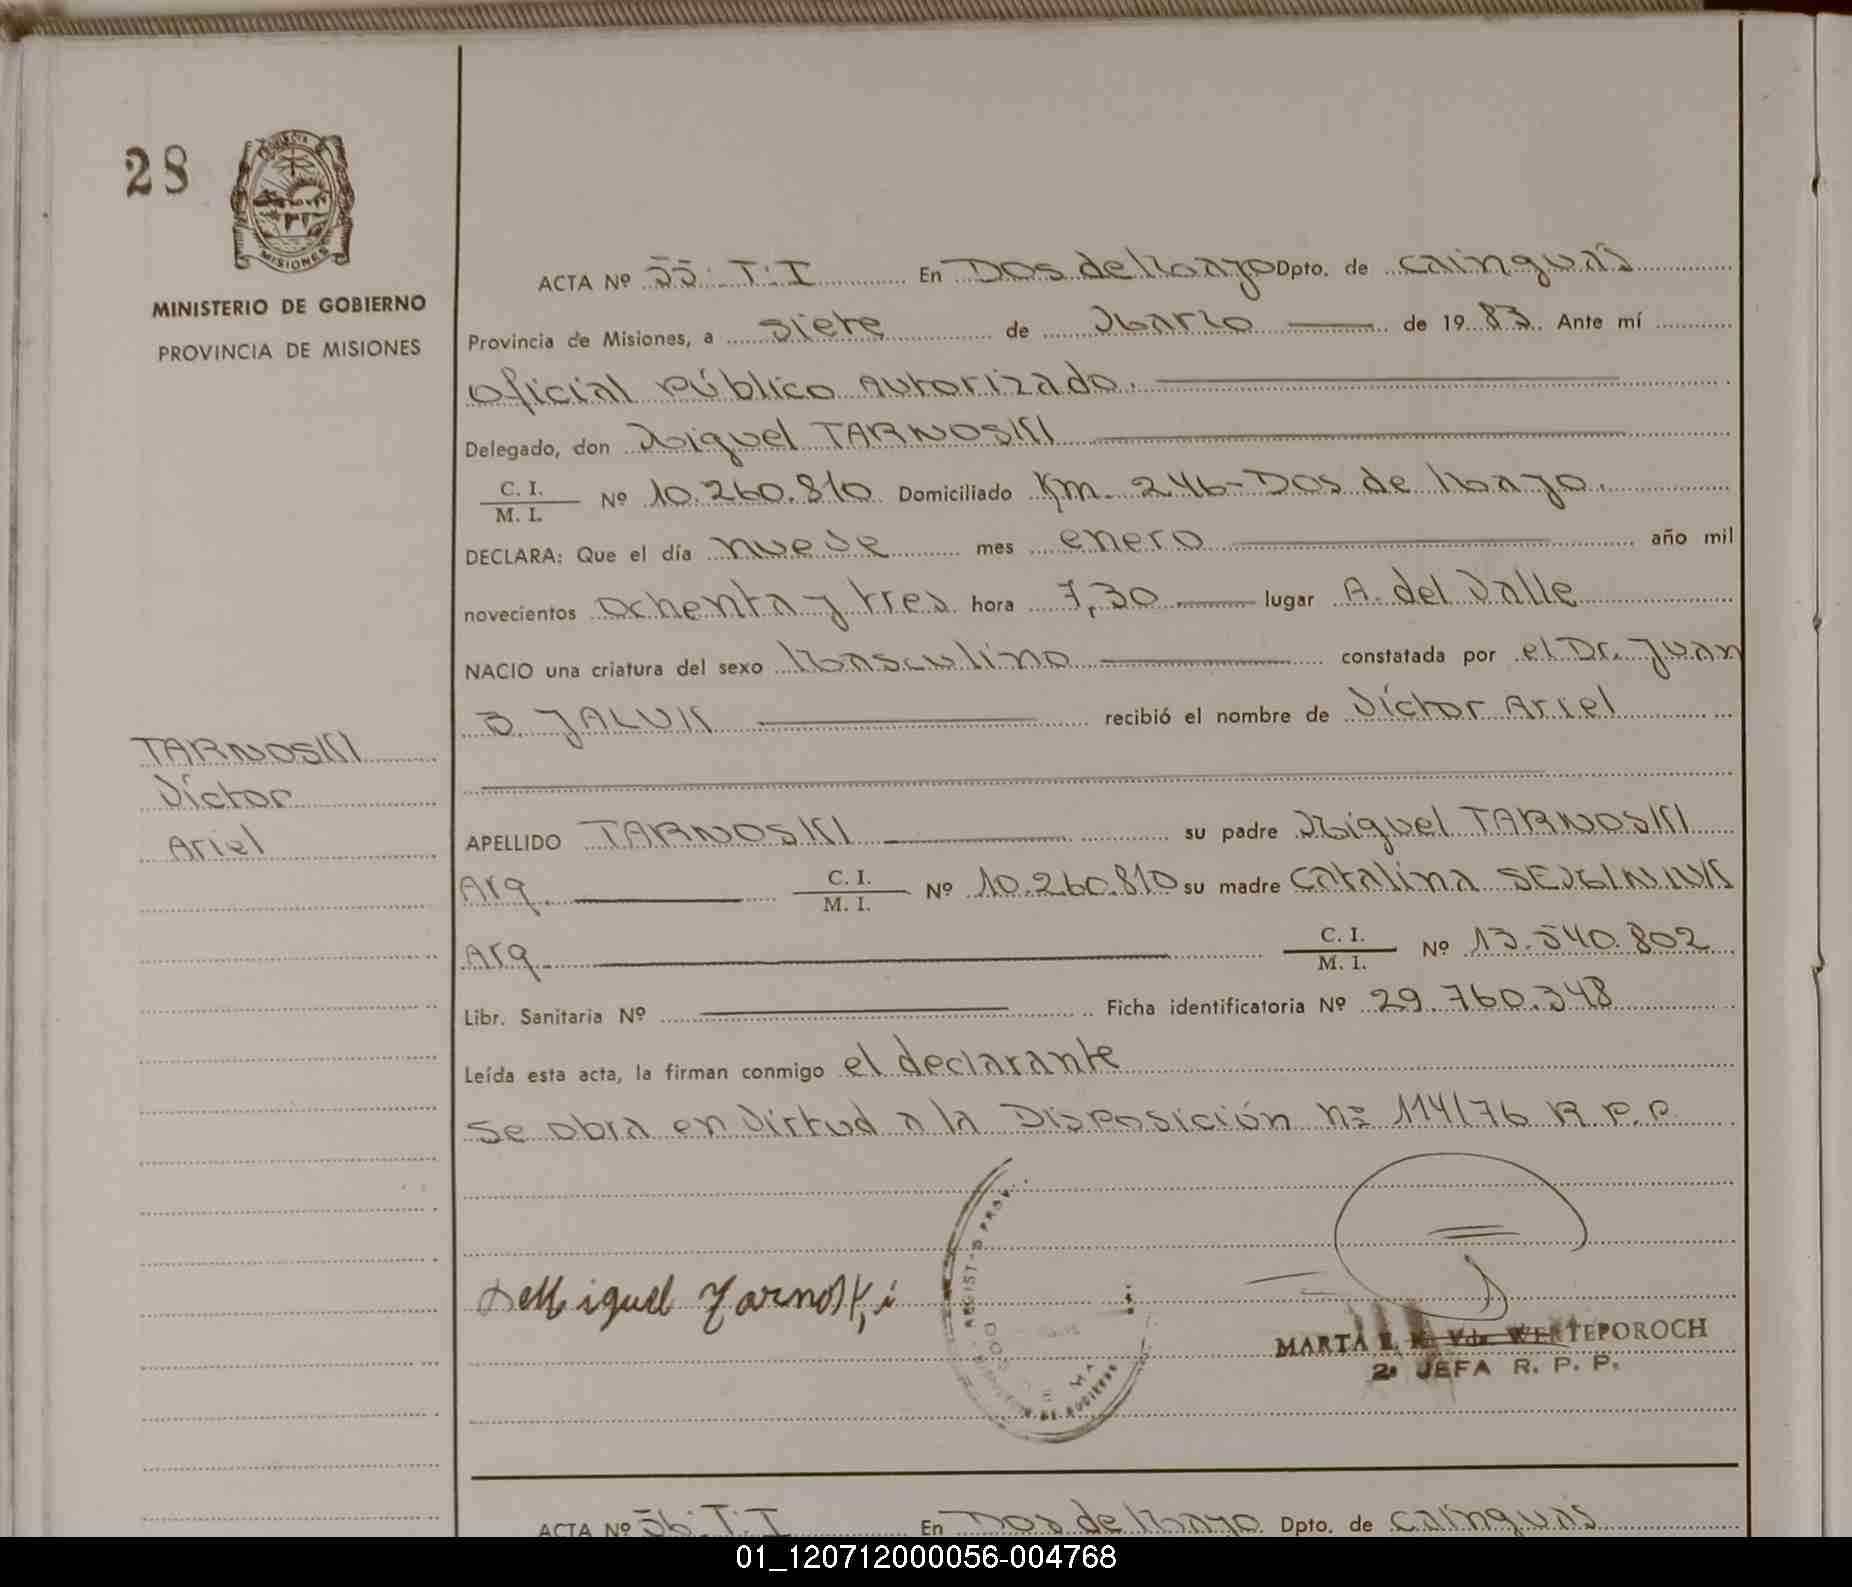 28
MISIONES
MINISTERIO DE GOBIERNO
PROVINCIA DE MISIONES
ACTA Nº 55-T:I En Dos de Mayo Dpto. de cainguás
Provincia de Misiones, a siete de Marzo de 1983. Ante mí
Oficial Público Autorizado.
Delegado, don Miguel TARNOSKI
C. I. / M. I. Nº 10.260.810 Domiciliado Km. 246-Dos de Mayo.
DECLARA: Que el día nueve mes enero año mil
novecientos ochenta y tres hora 7,30 lugar A. del Valle
NACIO una criatura del sexo Masculino constatada por el Dr. Juan
JALUK recibió el nombre de Víctor Ariel
TARNOSKI
Víctor
Ariel
APELLIDO TARNOSKI su padre Miguel TARNOSKI
Arg. C. I. / M. I. Nº 10.260.810 su madre Catalina
Arg. C. I. / M. I. Nº 13.540.802
Libr. Sanitaria Nº Ficha identificatoria Nº 29.760.348
Leída esta acta, la firman conmigo el declarante
Se obra en Virtud a la Disposición Nº 114/76 R.P.P.
Miguel Tarnoski
MARTA E. K. Vda. WERTEPOROCH
2ª JEFA R. P. P.
ACTA Nº 56:T:I En Dos de Mayo Dpto. de cainguás
01_120712000056-004768